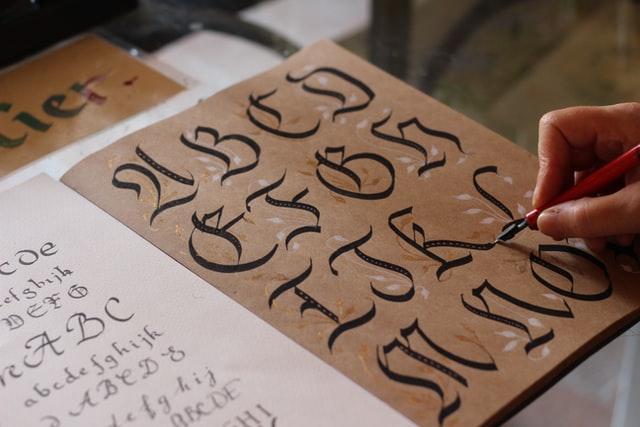 lier
A B C D
E F G H
I J K L
M N O
cde
efghijk
DEFG
ABC
abcdefghijk
ABCD
efghij
ABCDE